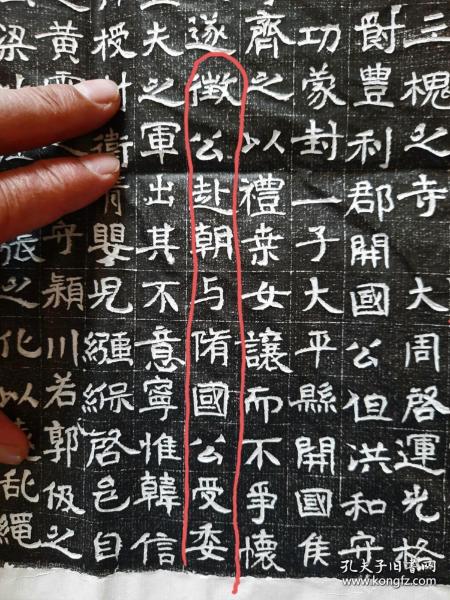 三槐之寺大周啓運光格
豐利郡開國公但洪和守
功蒙封一子大平縣開國侯
齊之以禮桒女讓而不爭懷
遂徵公赴朝与隋國公受委
夫之軍出其不意寧惟韓信
授衛青嬰兒繦緥啓邑自
之黃守潁川若郭伋之
梁張之化以遠乱繩
孔夫子旧书网
www.kongfz.com